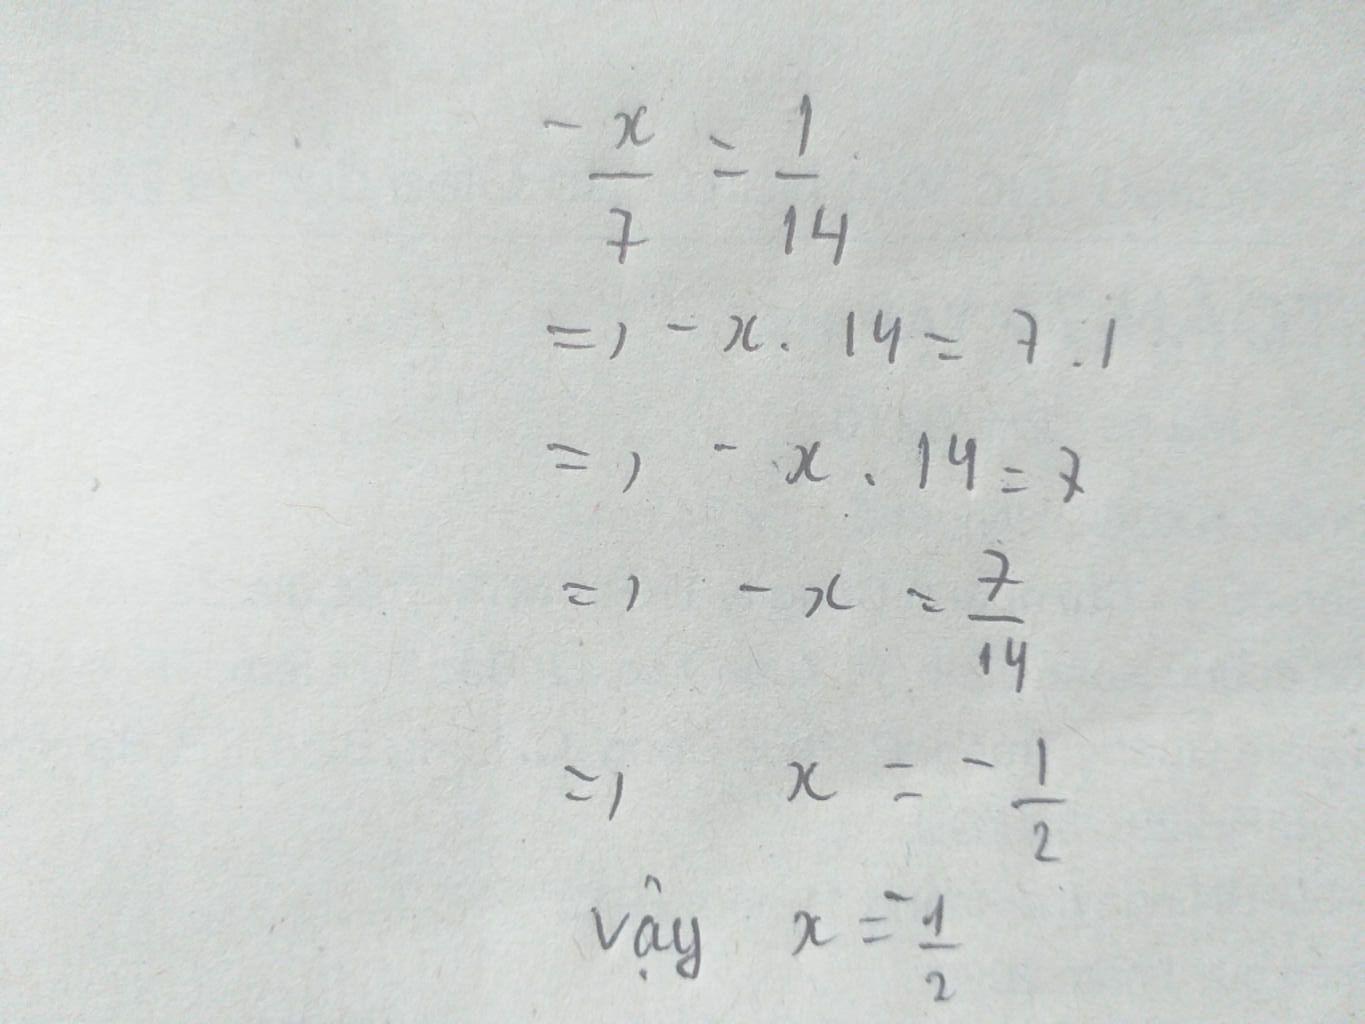 -x/7 = 1/14
=> -x . 14 = 7 . 1
=> -x . 14 = 7
=> -x = 7/14
=> x = -1/2
vậy x = -1/2